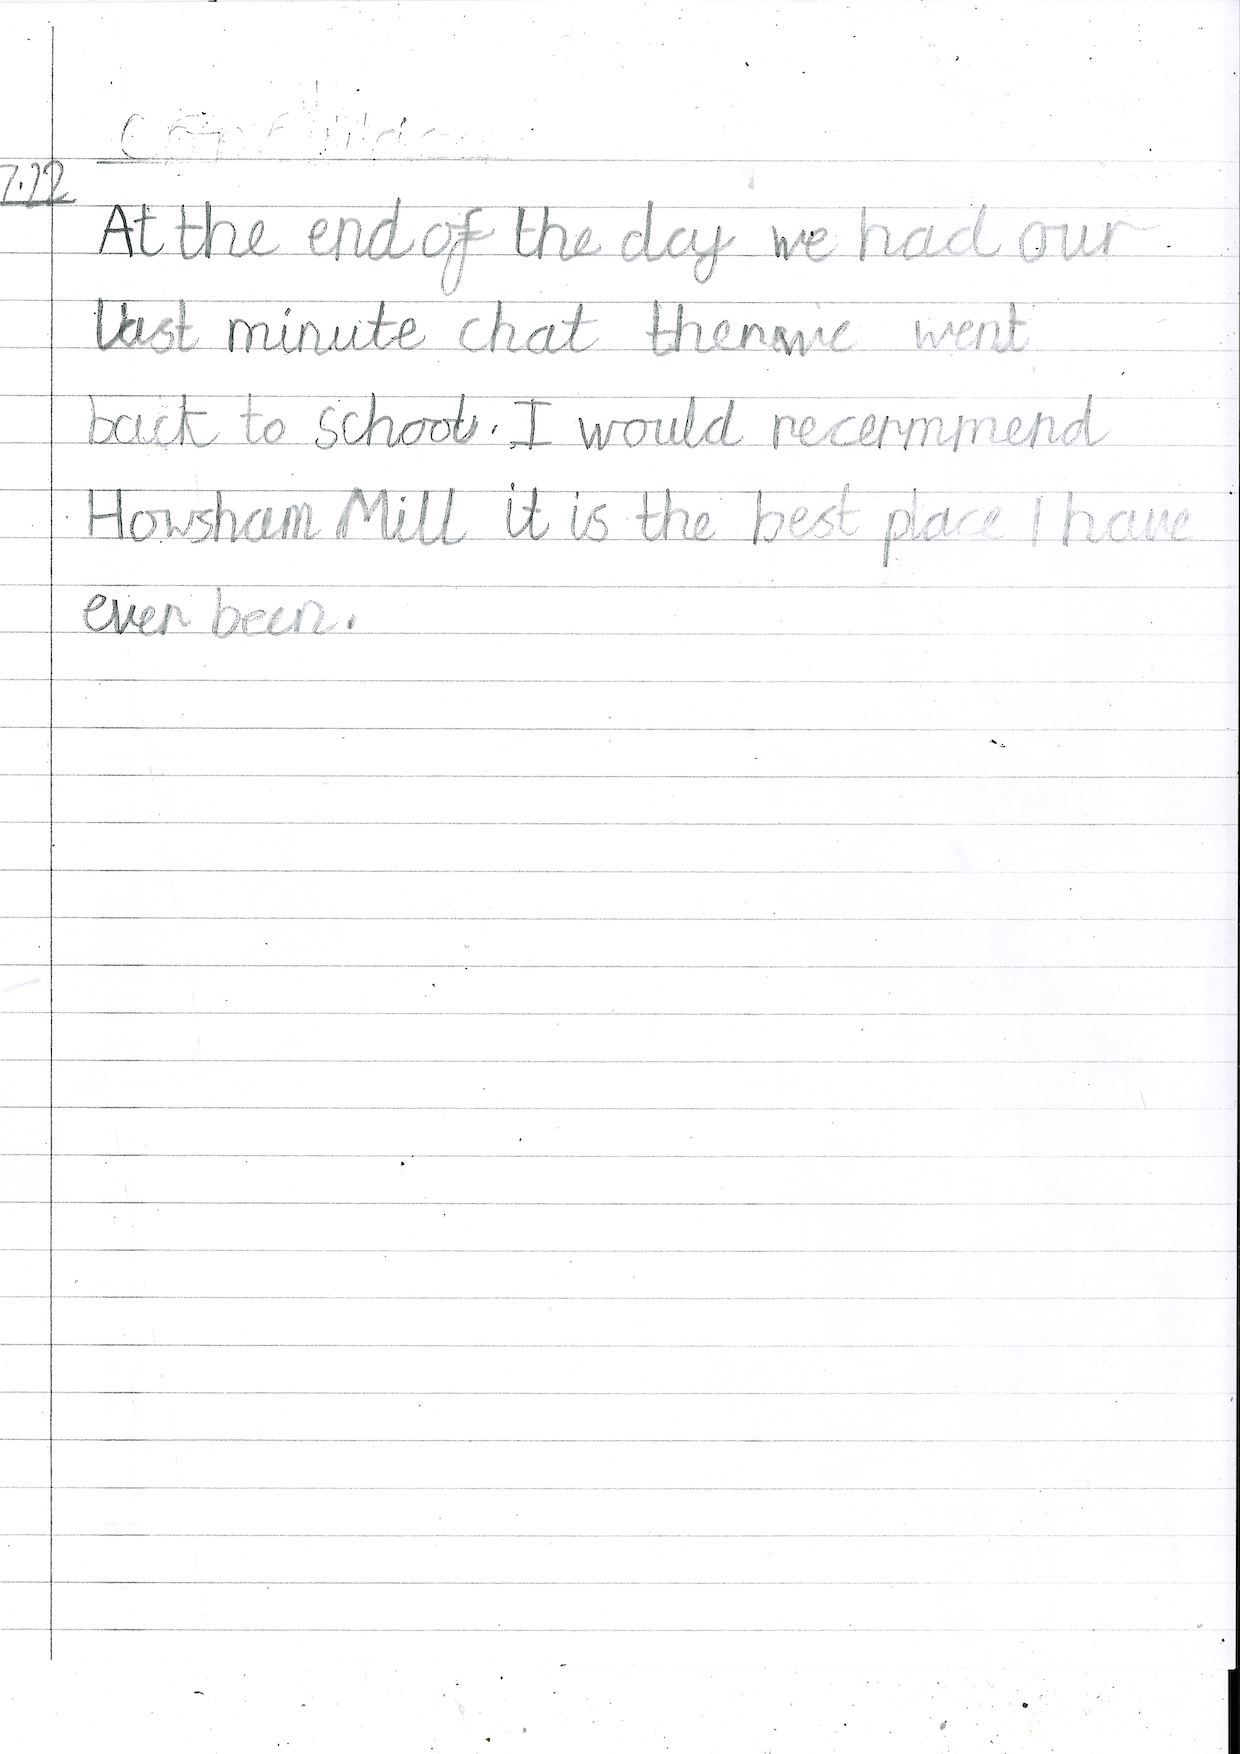 7.22
At the end of the day we had our
last minute chat then we went
back to school. I would recermmend
Howsham Mill it is the best place I have
ever been.